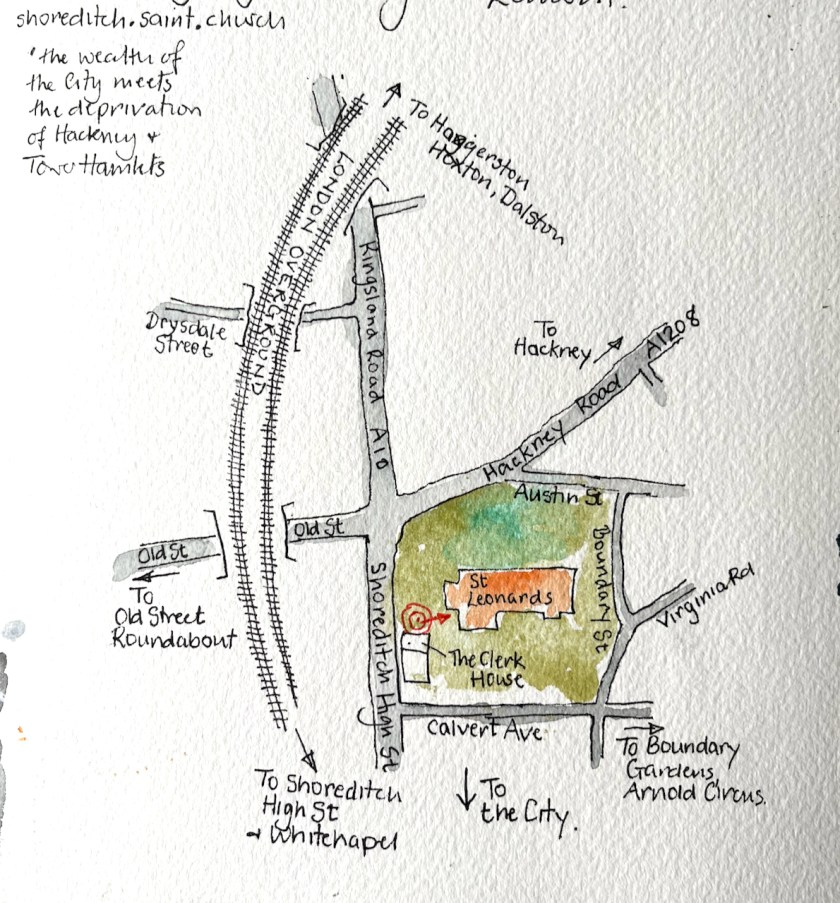 London.
shoreditch.saint.church
'the wealth of
the City meets
the deprivation
of Hackney +
Tower Hamlets
To Haggerston
Hoxton, Dalston
LONDON OVERGROUND
Kingsland Road A10
Drysdale
Street
To
Hackney
Hackney Road A1208
Austin St
Old St
Old St
To
Old Street
Roundabout
Boundary St
Virginia Rd
St
Leonards
Shoreditch High St
The Clerk
House
Calvert Ave
To Boundary
Gardens,
Arnold Circus.
To Shoreditch
High St
+ Whitchapel
To
the City.